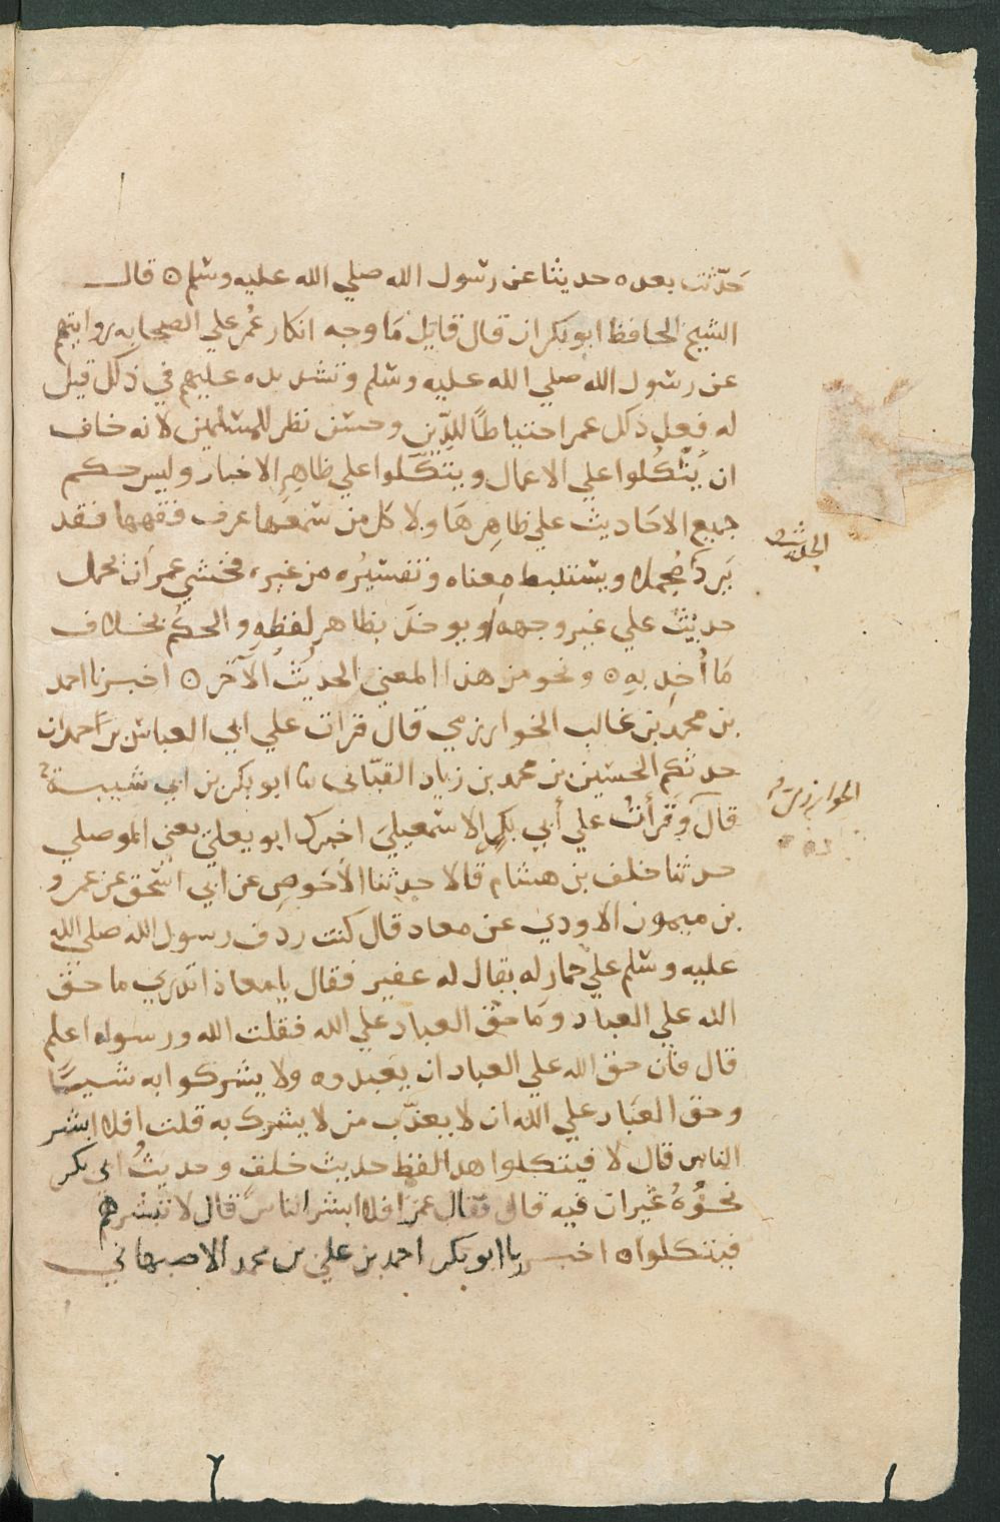 حدّثت بعده حديثا عن رسول الله صلي الله عليه وسلم ٥ قال
الشيخ الحافظ ابو بكر ان قال قايل مَا وجه انكار عُمر علي الصحابه روايتهم
عن رسول الله صلي الله عليه وسلم وتشديده عليهم في ذلك قيل
له فعل ذلك عمر احتياطًا للدِّين وحسن نظر للمسلمين لانه خاف
ان يتّكلوا علي الاعمال ويتكّلوا علي ظاهر الاخبار وليس حكم
جميع الاحَاديث علي ظاهِرهَا ولا كل من سمعها عرف فقهها فقد
يَرد مُجمله ويستنبط معناه وتفسيُره من غيره فخشي عمر ان يحمل
حديثٌ علي غير وجهه او يوخذ بظاهر لفظهِ والحكُم بخلاف
مَا أُخِد بهِ ٥ ونحو من هذا المعني الحديُث الآخر ٥ اخبرنا احمد
بن محمد بن غالب الخوارزمي قال قرات علي ابي العباس بن احمدان
حدثكم الحسين بن محمد بن زياد القبّانى ثنا ابو بكر بن ابي شيبة
قالَ وَقَرأتُ علي أبي بكرٍ الاسمعيلي اخبرك ابو يعلي يعني الموصلي
حدثنا خلف بن هشام قالا حدثنا الأحوصِ عن ابي اسحق عن عمرو
بن ميمون الاودي عن معاد قال كنت ردف رسول الله صلي الله
عليه وسلم علي حمار له يقال له عفير فقال يا معاذ اتدري ما حق
الله علي العباد ومَا حق العباد علي الله فقلت الله ورسوله اعلم
قال فان حق الله علي العباد ان يعَبدوه ولا يشركوا به شيئًا
وحق العبَاد علي الله ان لا يعذّب من لا يشرك به قلت افلا ابشر
الناس قال لا فيتكلوا هدا لفظ حديث خلف وحديثُ ابي بكر
نحَوُهُ غيرات فيه قال فقال عمر افلا ابشر الناسَ قال لا تبشرهم
فيتكلوا ٥ اخبرنا ابو بكر احمد بن علي بن محمد الاصبهاني
الخوارزمي